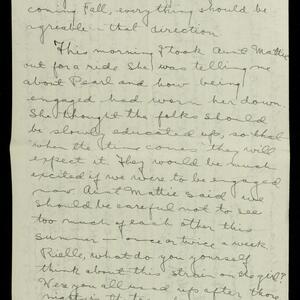 coming Fall, everything should be
agreable in that direction
This morning I took Aunt Mattie
out for a ride She was telling me
about Pearl and how being
engaged had worn her down.
She thought the folks should
be slowly educated up, so that
when the time comes they will
expect it. They would be much
excited if we were to be engaged
now. Aunt Mattie said we
should be careful not to see
too much of each other this
summer - once or twice a week.
Rielle, what do you yourself
think about this strain on the girl?
Were you all used up after those